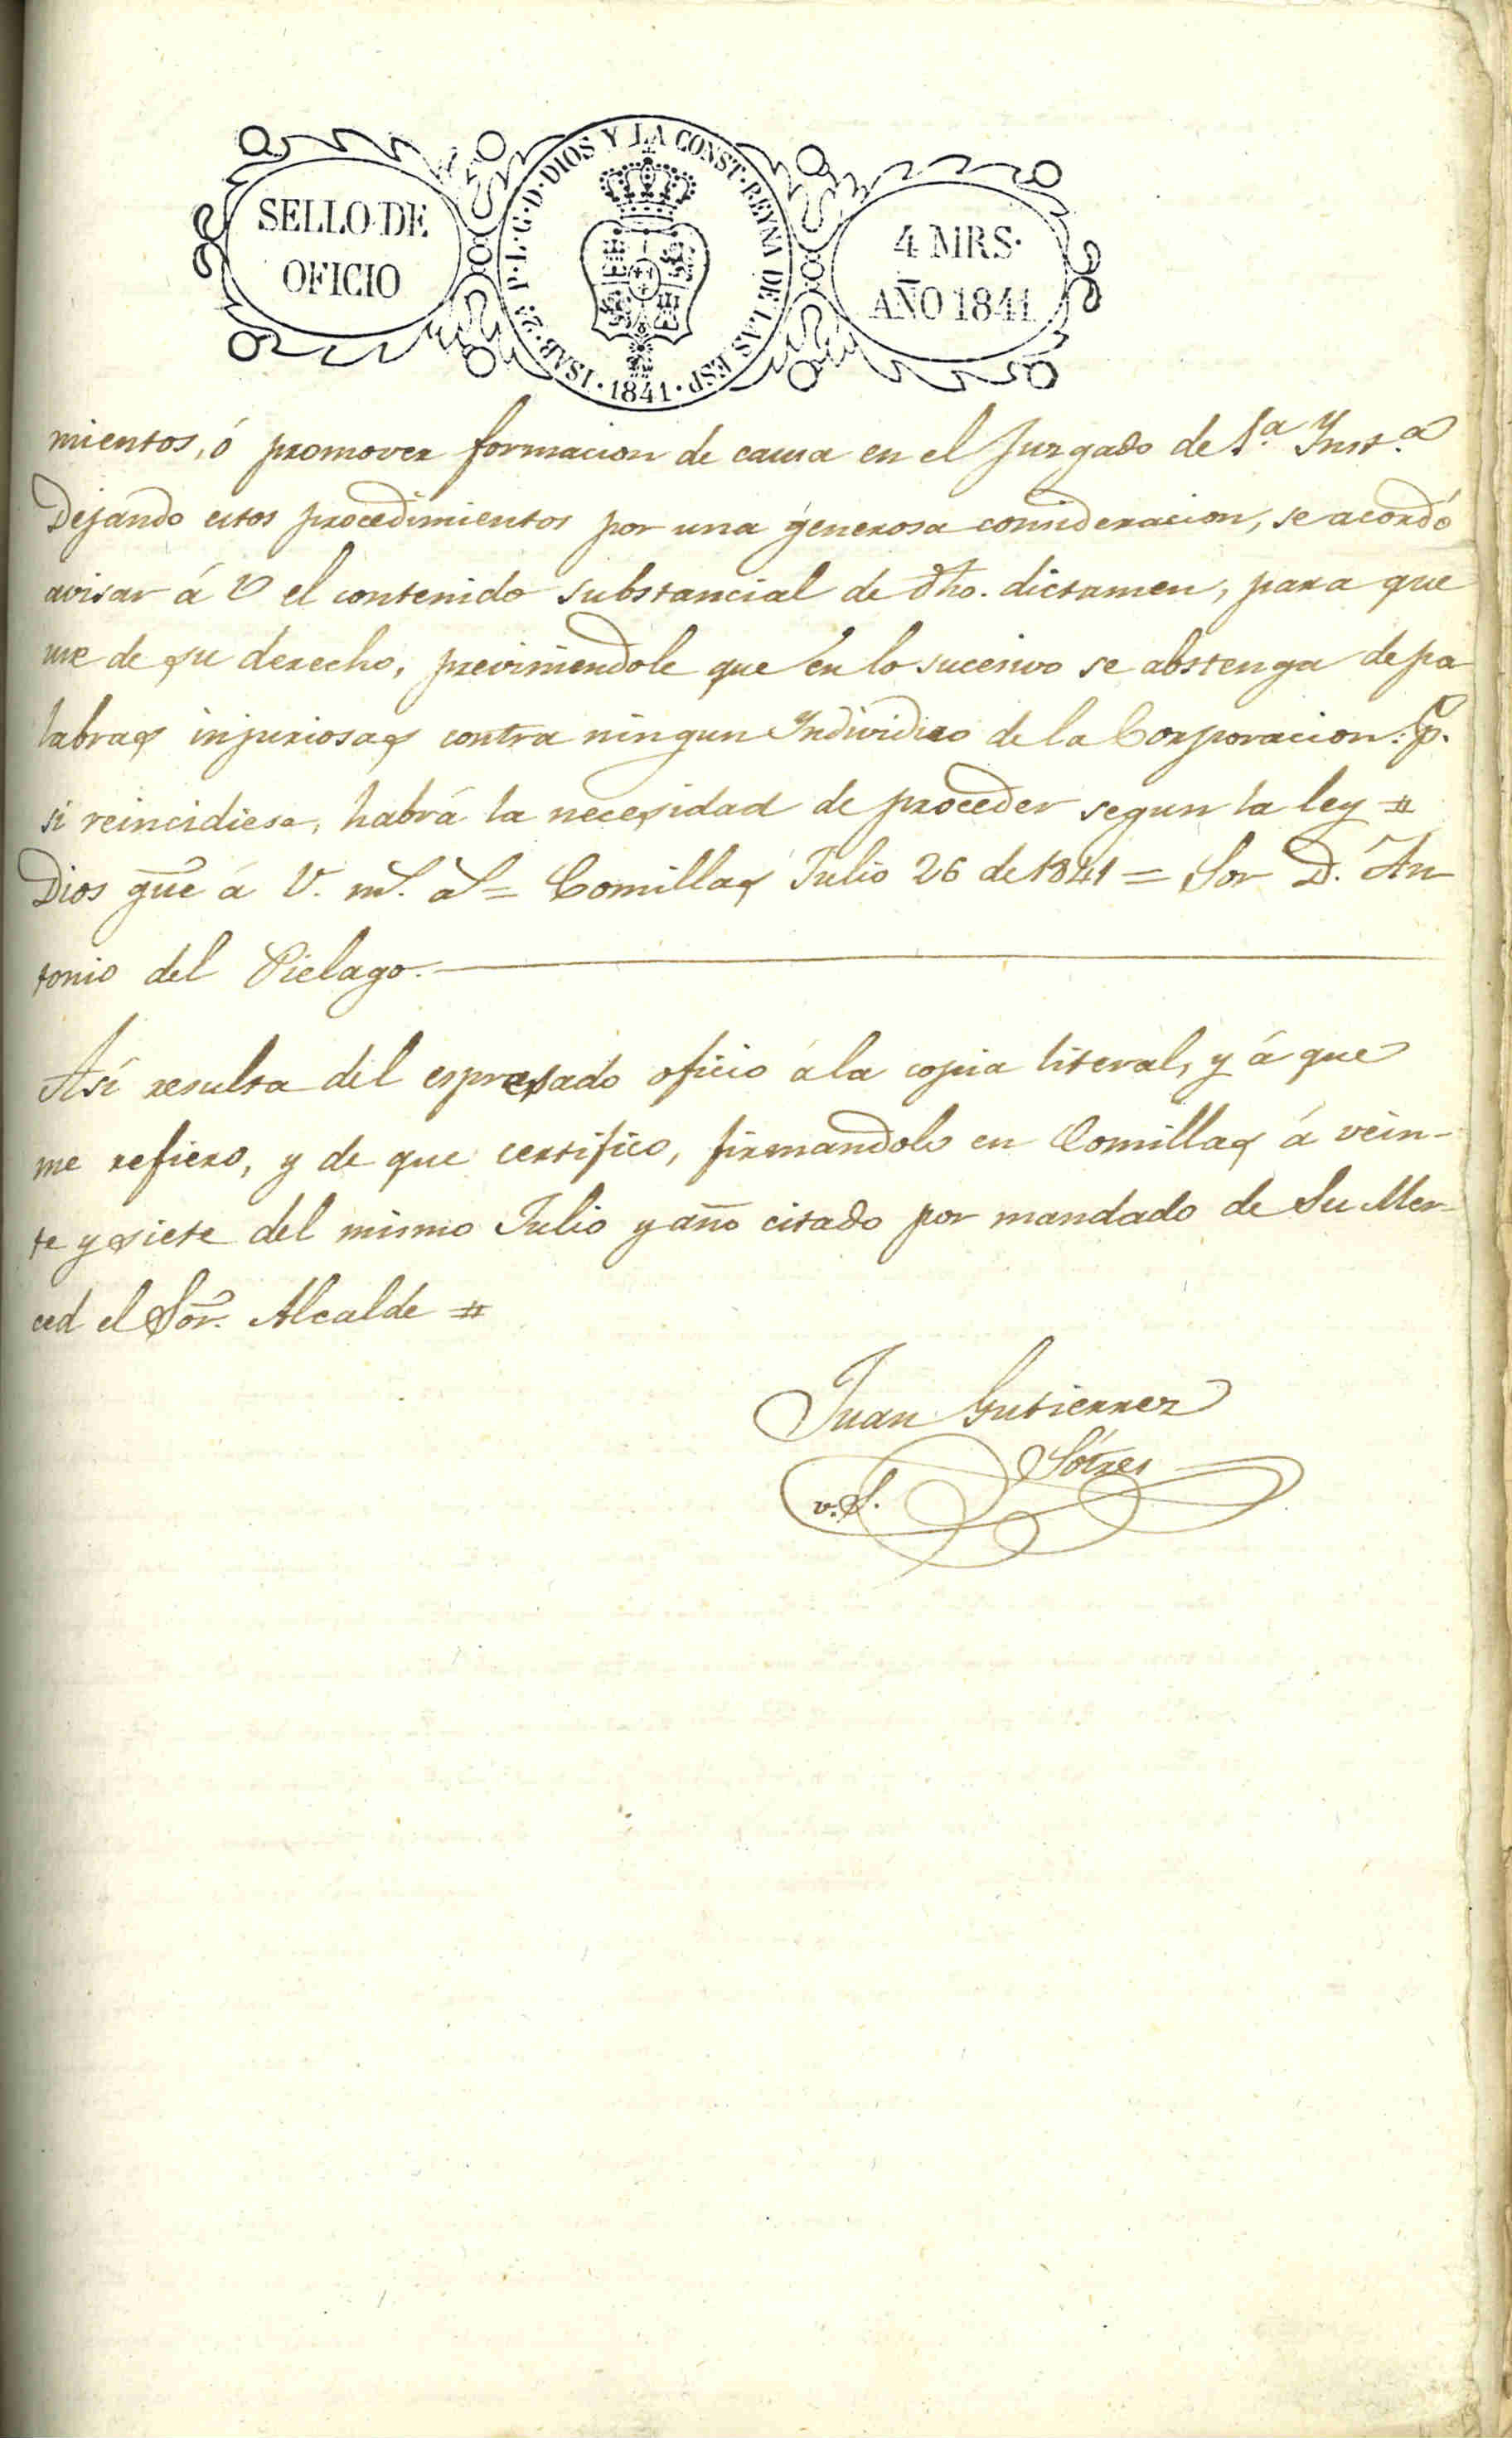 SELLO DE
OFICIO
ISAB. 2ª P. L. G. D. DIOS Y LA CONST. REYNA DE LAS ESP.
1841
4 MRS.
AÑO 1841
mientos, ó promover formacion de causa en el Juzgado de 1.ª Ynst.ª
Dejando estos procedimientos por una generosa consideracion, se acordó
avisar á V el contenido substancial de dho. dictamen, para que
use de su derecho, previniendole que en lo sucesivo se abstenga de pa
labras injuriosas contra ningun Yndividuo de la Corporacion: p.
si reincidiese, habrá la necesidad de proceder segun la ley #
Dios gue á V. m.s a.s = Comillas Julio 26 de 1841 = Sor D. An
tonio del Pielago.
Así resulta del espresado oficio á la copia literal, y á que
me refiero, y de que certifico, firmandolo en Comillas á vein-
te y siete del mismo Julio y año citado por mandado de Su Mer-
ced el Sor. Alcalde #
Juan Gutierrez
Sótres
v. S.